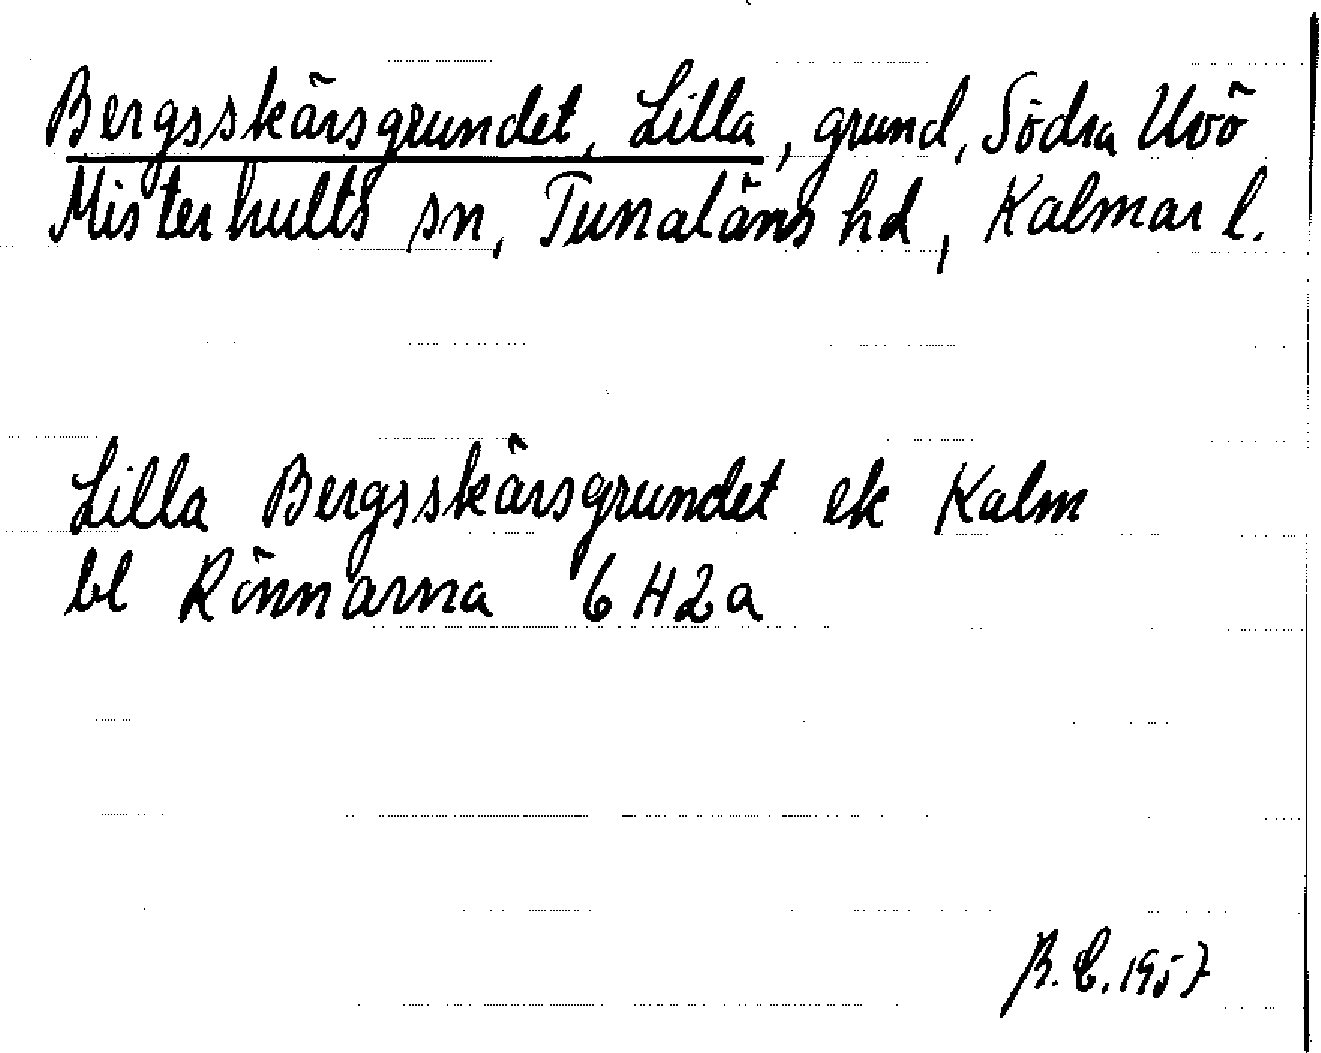 Bergsskärsgrundet, Lilla, grund, Södra Uvö
Misterhults sn, Tunaläns hd, Kalmar l.
Lilla Bergsskärsgrundet ek Kalm
bl Rönnarna 6 H 2 a
B. C. 1957